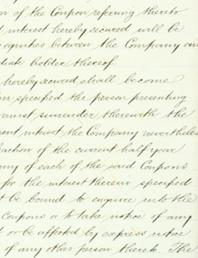 n of the Coupon referring thereto
d interest hereby secured will be
equities between the Company and
holder thereof.
hereby secured shall become
in specified the person presenting
must surrender therewith the
interest the Company nevertheless
fraction of the current half year
any of each of the said Coupons
for the interest therein specified
t be bound to enquire into the
Coupons or to take notice of any
or be affected by express notice
of any other person thereto. The